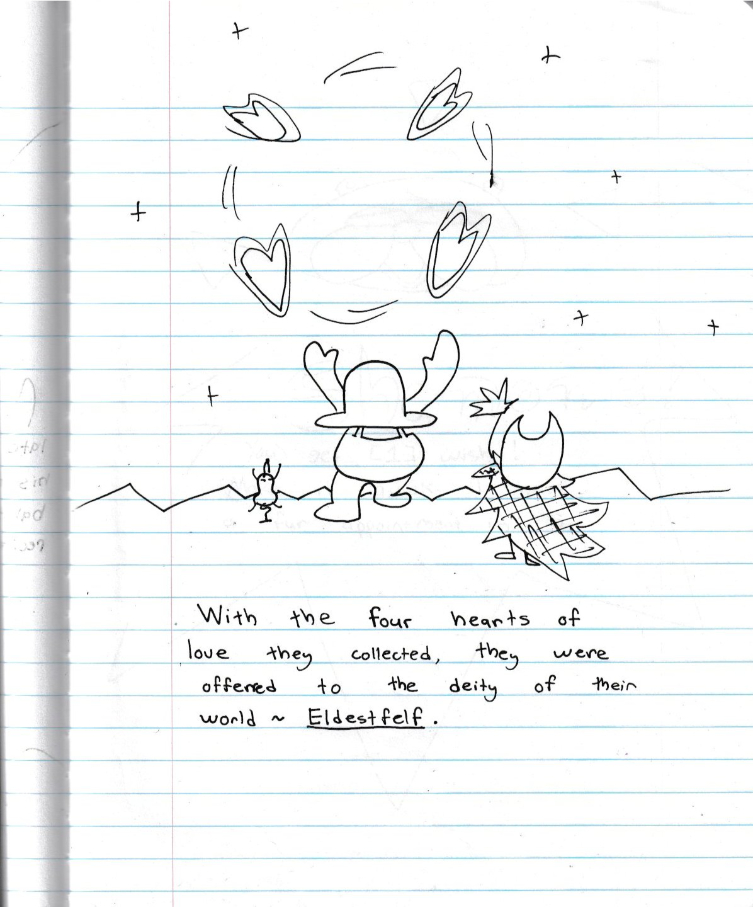 With the four hearts of
love they collected, they were
offered to the deity of their
world ~ Eldestfelf.